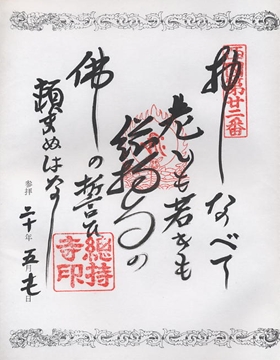 西國第廿二番
押しなべて
老いも若きも
総持寺の
佛の誓ひ
頼まぬはなし
總持
寺印
参拝 二十年五月七日